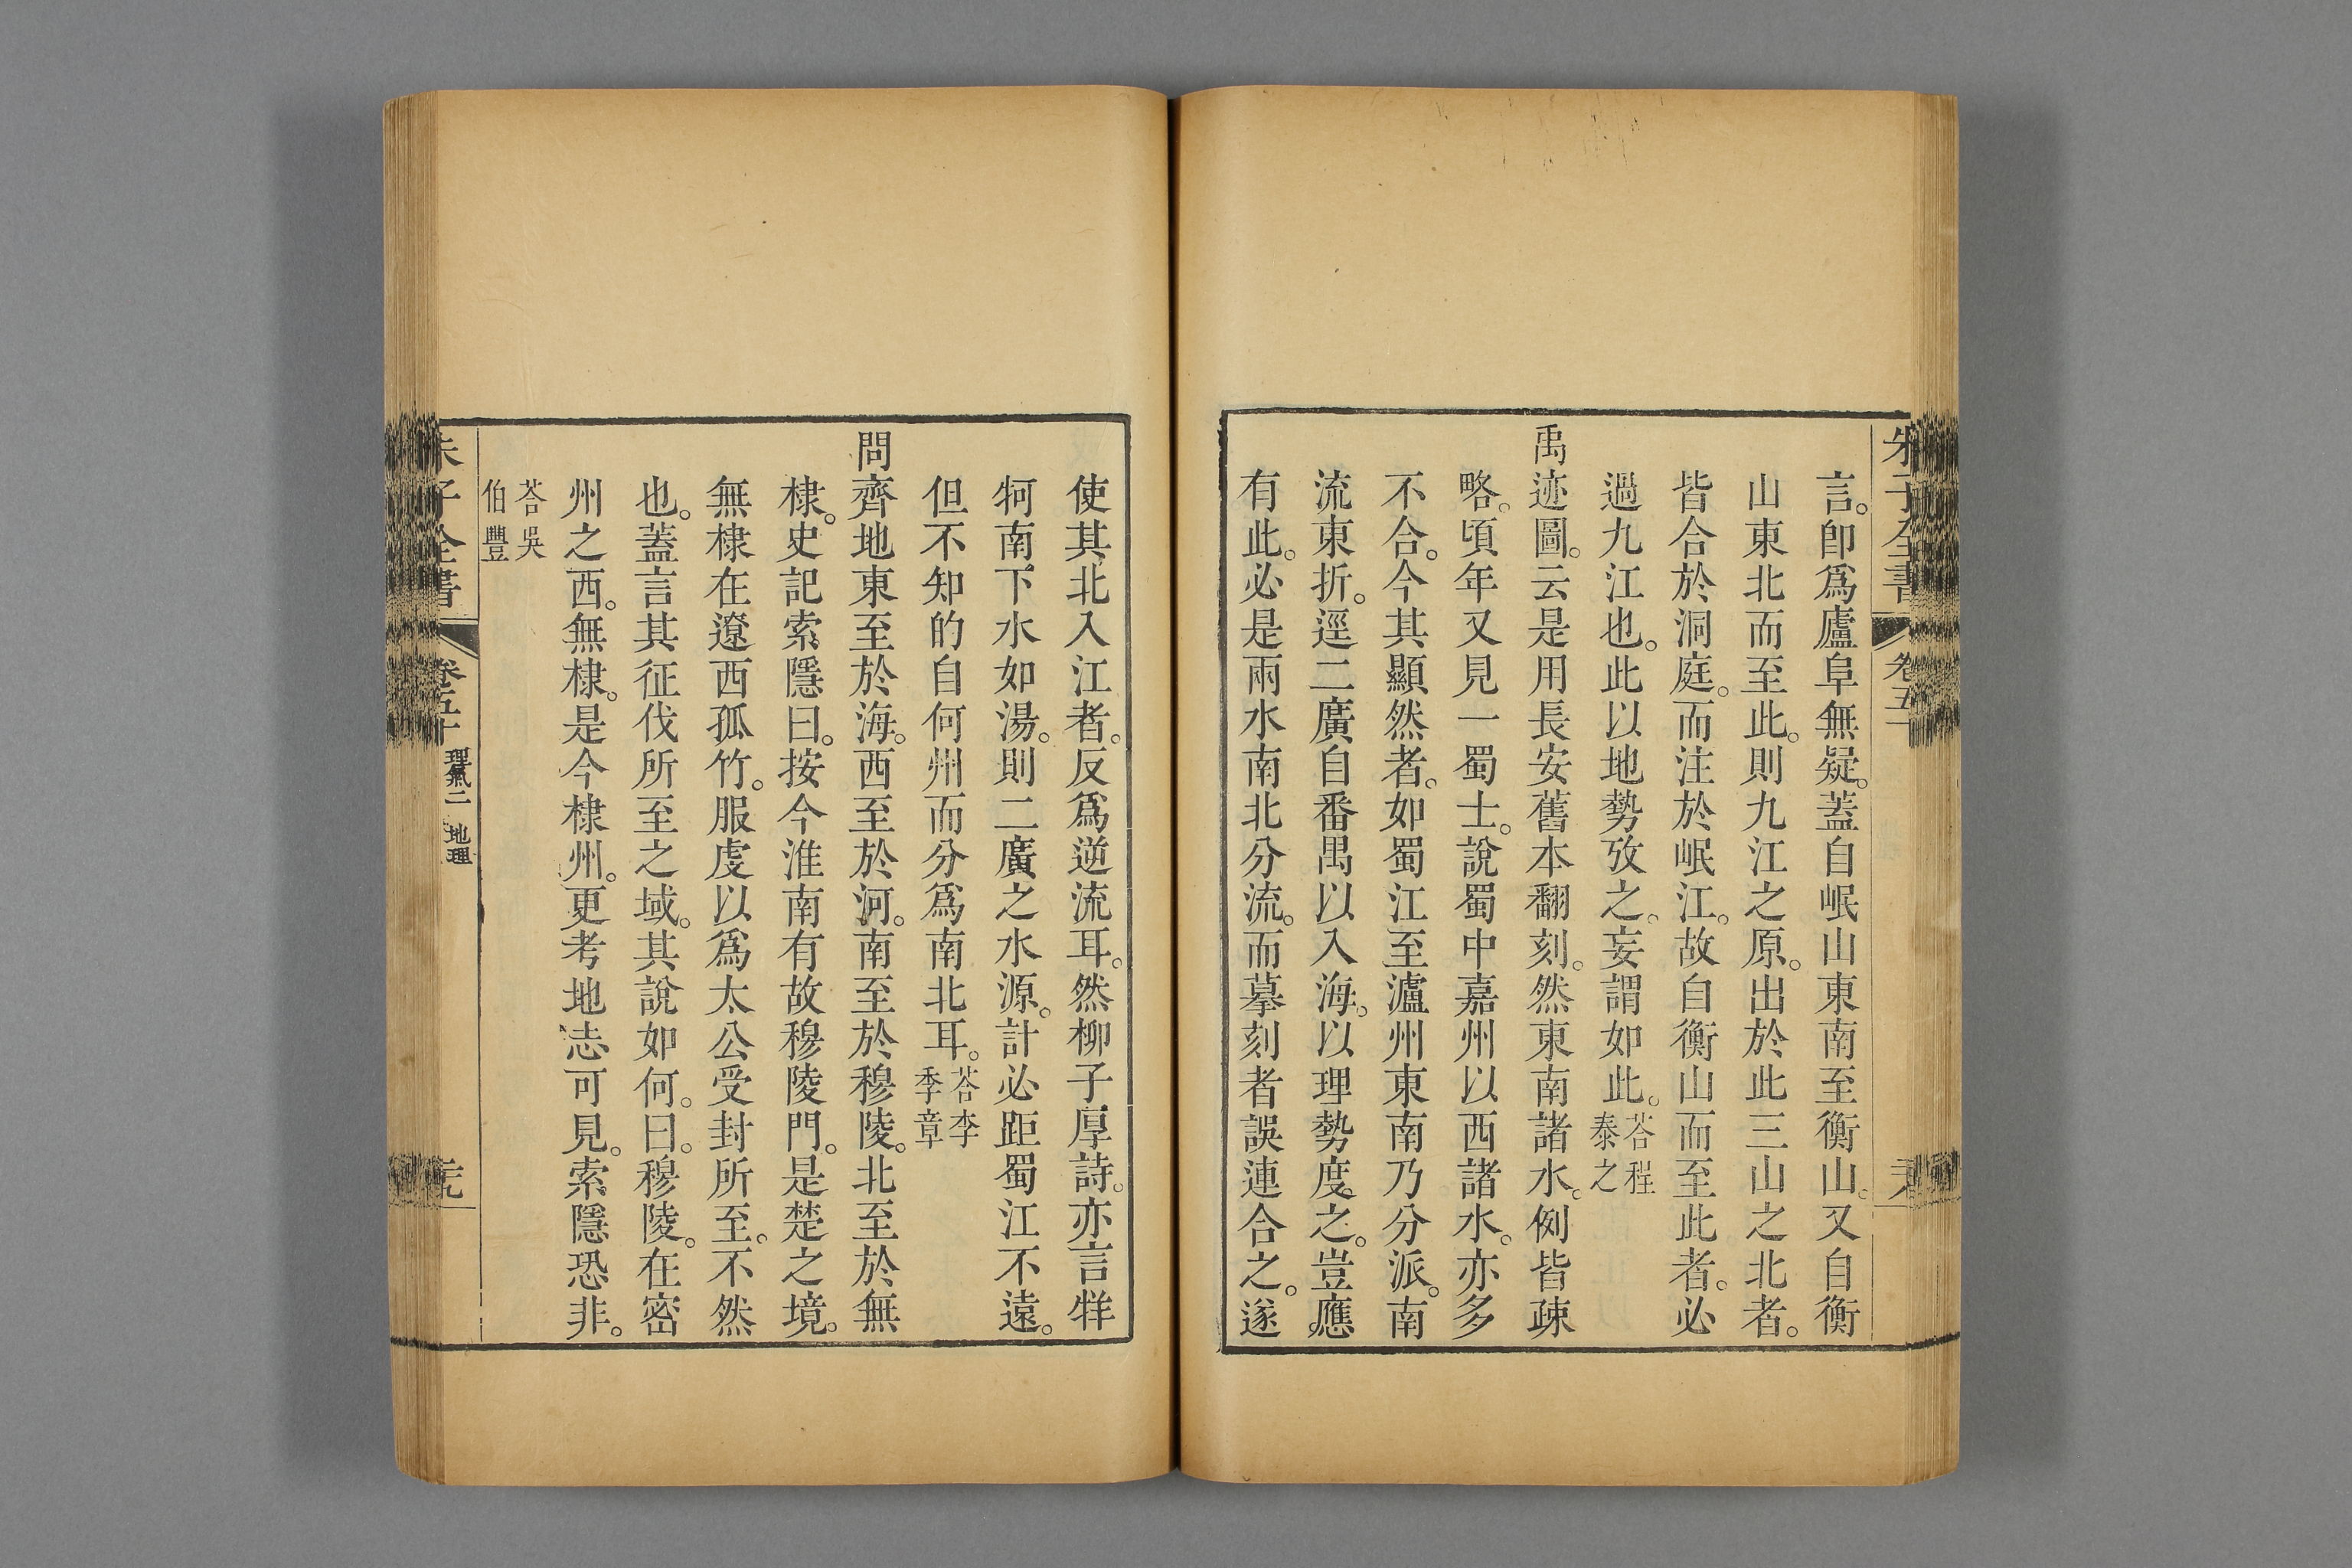 朱子全書 卷五十
言。卽爲廬阜無疑。蓋自岷山東南至衡山。又自衡
山東北而至此。則九江之原。出於此三山之北者。
皆合於洞庭。而注於岷江。故自衡山而至此者。必
過九江也。此以地勢攷之。妄謂如此。荅程泰之
禹迹圖。云是用長安舊本翻刻。然東南諸水。例皆疎
略。頃年又見一蜀士。說蜀中嘉州以西諸水。亦多
不合。今其顯然者。如蜀江至瀘州東南乃分派。南
流東折。逕二廣自番禺以入海。以理勢度之。豈應
有此。必是兩水南北分流。而摹刻者誤連合之。遂
使其北入江者。反爲逆流耳。然柳子厚詩。亦言牂
牁南下水如湯。則二廣之水源。計必距蜀江不遠。
但不知的自何州而分爲南北耳。荅李季章
問齊地東至於海。西至於河。南至於穆陵。北至於無
棣。史記索隱曰。按今淮南有故穆陵門。是楚之境。
無棣在遼西孤竹。服虔以爲太公受封所至。不然
也。蓋言其征伐所至之域。其說如何。曰。穆陵。在密
州之西。無棣。是今棣州。更考地志可見。索隱恐非。
荅吳伯豐
朱子全書 卷五十 理氣二 地理